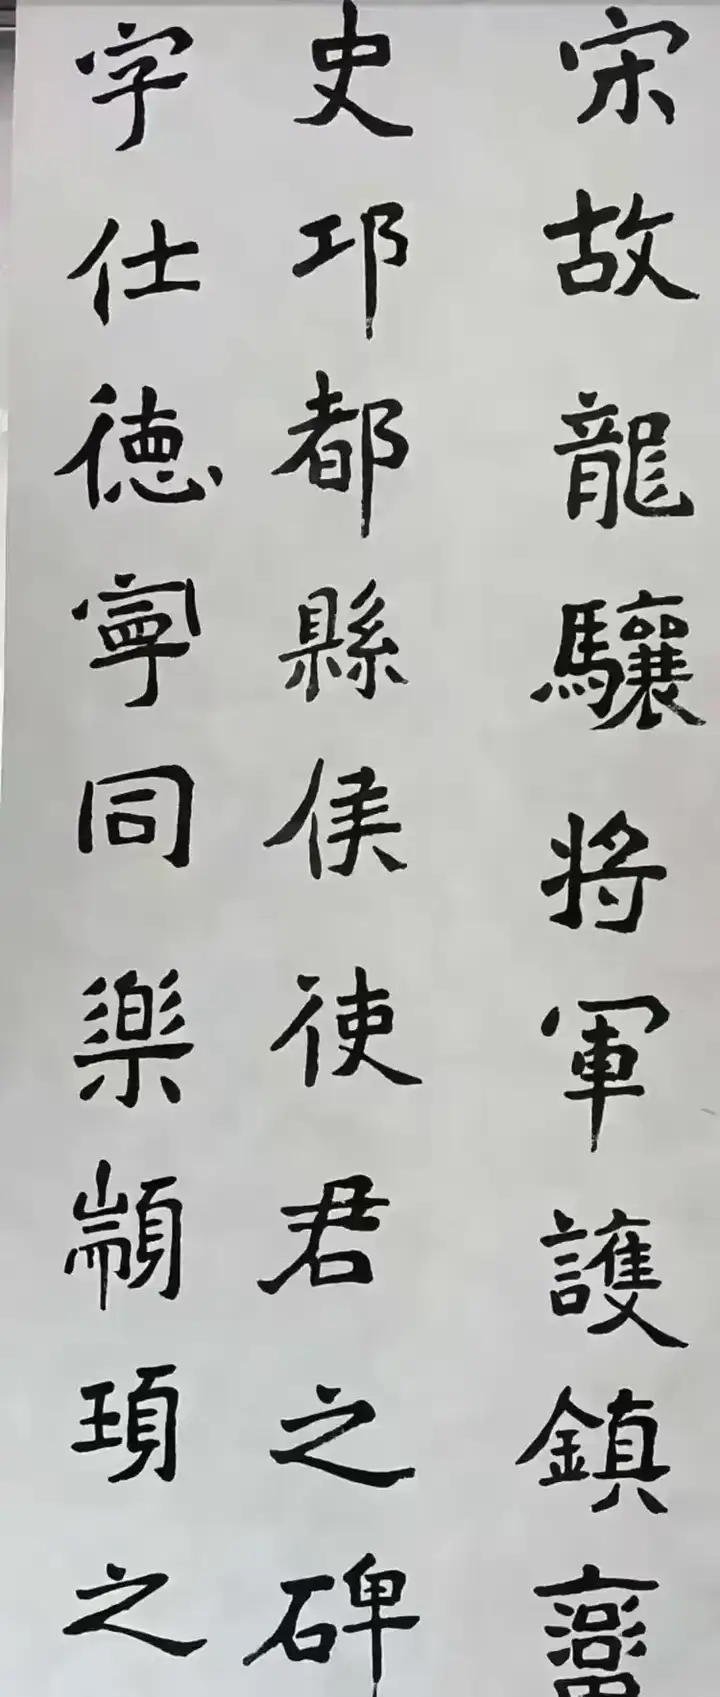 宋故龍驤將軍護鎮
史邛都縣侯使君之碑
字仕德寧同樂顓頊之